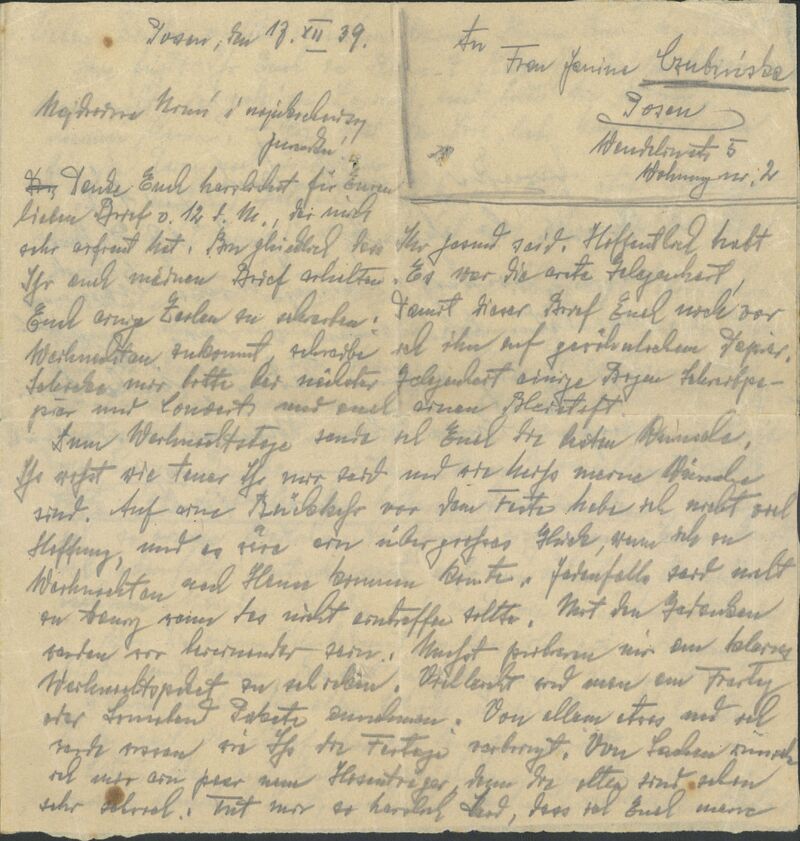 Posen, den 17. XII 39.
An
Frau Janina Czubińska
Posen
Wendelinstr 5
Wohnung nr. 2
Najdroższa Niuniu i najukochańszy
Danke Euch herzlichst für Euren
lieben Brief v. 12 d. M., der mich
sehr erfreut hat. Bin glücklich dass Ihr gesund seid. Hoffentlich habt
Ihr auch meinen Brief erhalten. Es war die erste Gelegenheit,
Euch einige Zeilen zu schreiben. Damit dieser Brief Euch noch vor
Weihnachten zukommt, schreibe ich ihn auf gewöhnlichem Papier.
Schicke mir bitte bei nächster Gelegenheit einige Bogen Schreibpa-
pier und Couverts und auch einen Bleistift.
Zum Weihnachtstage sende ich Euch die besten Wünsche.
Ihr wisst wie teuer Ihr mir seid und wie heiss meine Wünsche
sind. Auf eine Rückkehr vor dem Feste habe ich nicht viel
Hoffnung, und es wäre ein übergrosses Glück, wenn ich zu
Weihnachten nach Hause kommen könnte. Jedenfalls seid nicht
zu traurig wenn das nicht eintreffen sollte. Mit den Gedanken
werden wir beieinander sein. Machst mir ein kleines
Weihnachtspaket zu schicken. Vielleicht wird man am Freitag
oder Sonnabend Pakete annehmen. Von allem etwas und ich
werde wissen wie Ihr die Festtage verbringt. Von Sachen wünsche
ich mir ein paar neue Hosenträger, denn die alten sind schon
sehr schwach. Tut mir so herzlich Leid, dass ich Euch meine